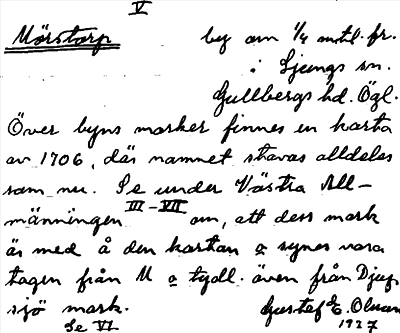 V
Mörstorp by om 1/4 mtl. fr.
i Ljungs sn.
Gullbergs hd. Ögl.
Över byns marker finnes en karta
av 1706, där namnet stavas alldeles
som nu. Se under Västra All-
männingen III-VII om, att dess mark
är med å den kartan o synes vara
tagen från M o tydl. även från Djup-
sjö mark. Gustaf E. Olsson
Se VI 1927